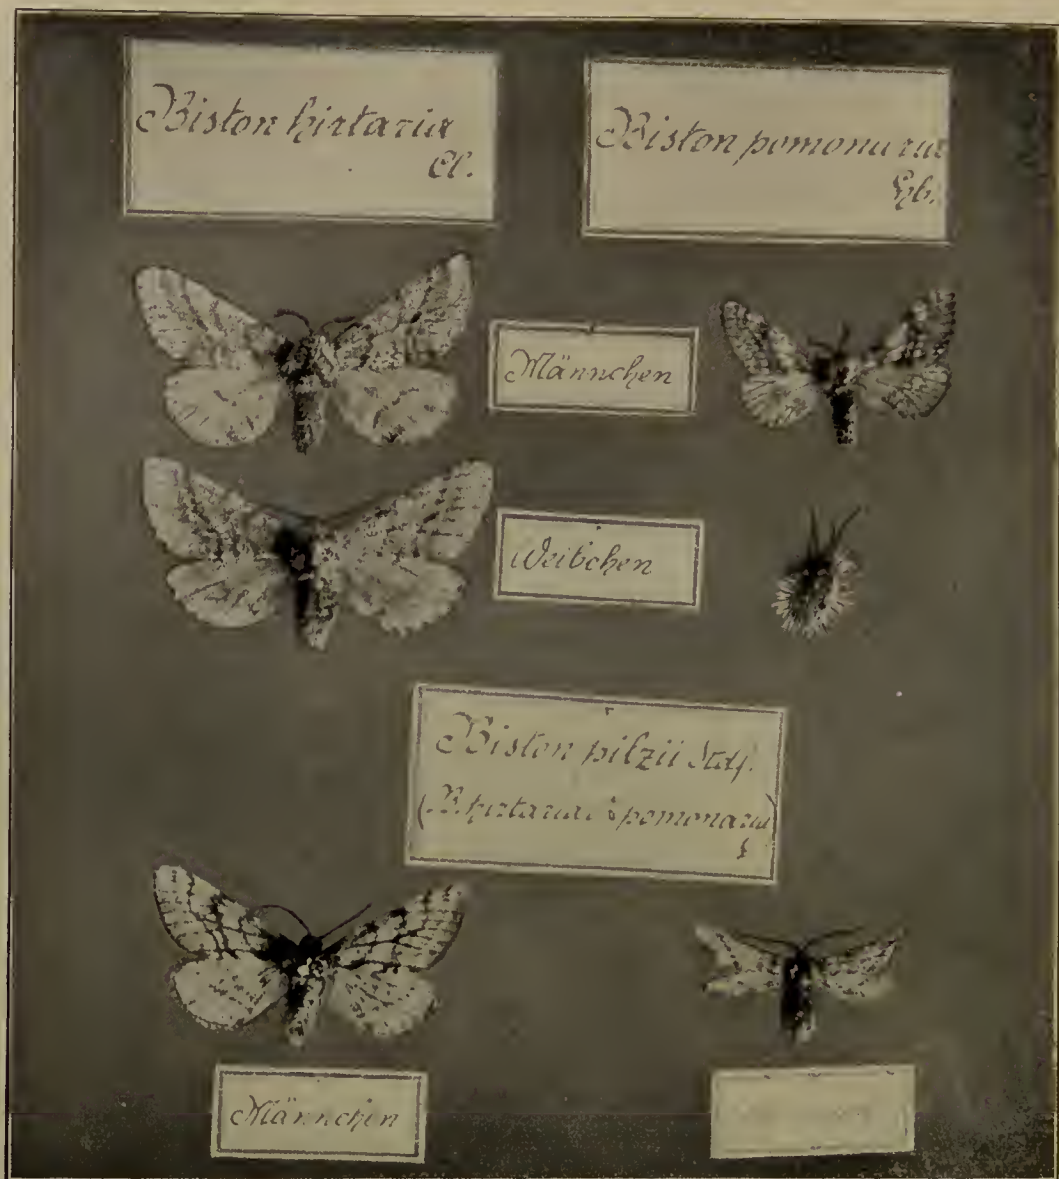 Biston hirtaria
Cl.
Biston pomonaria
Hb.
Männchen
Weibchen
Biston pilzii Stdf.
(B. hirtaria ♂ pomonaria
Männchen